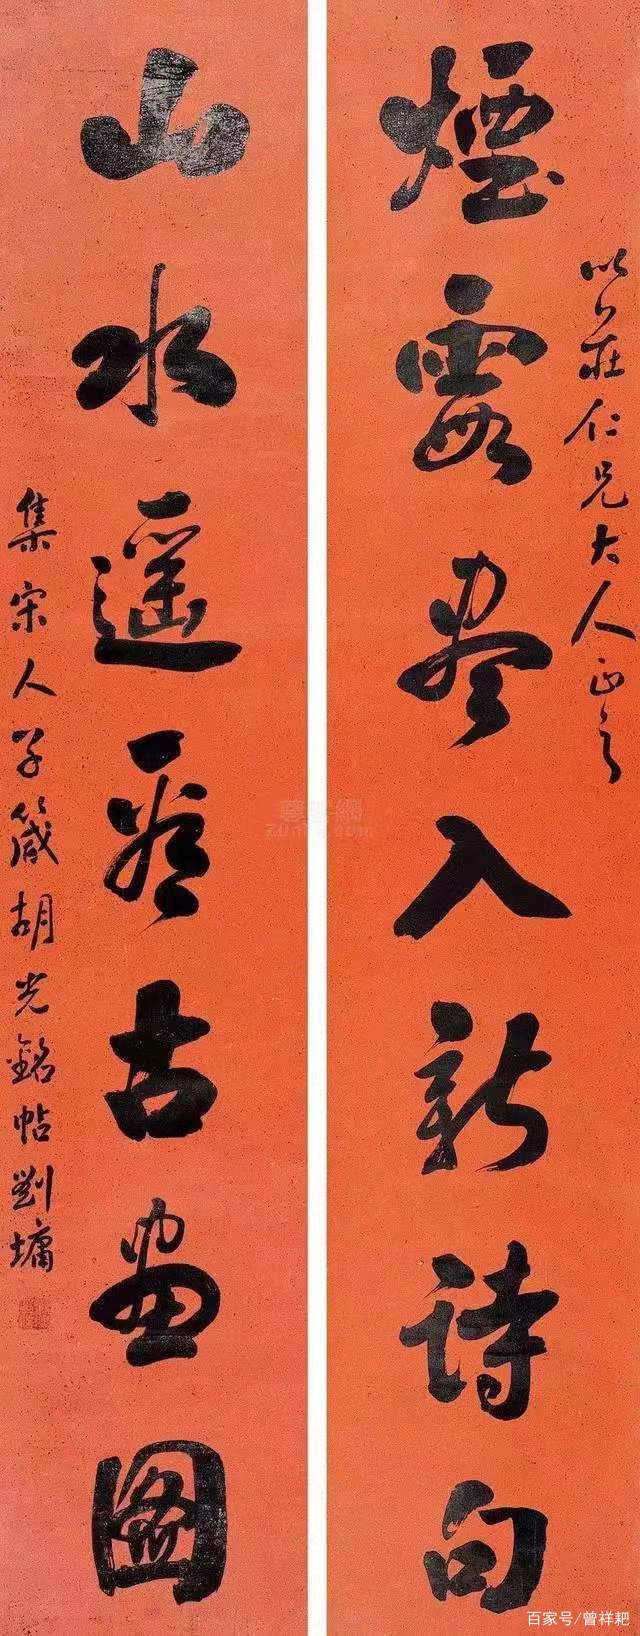 煙霞盡入新詩句
莊仁兄大人正之
山水遥看古畫圖
集宋人子箴胡光銘帖劉墉
百家号/曾祥耙